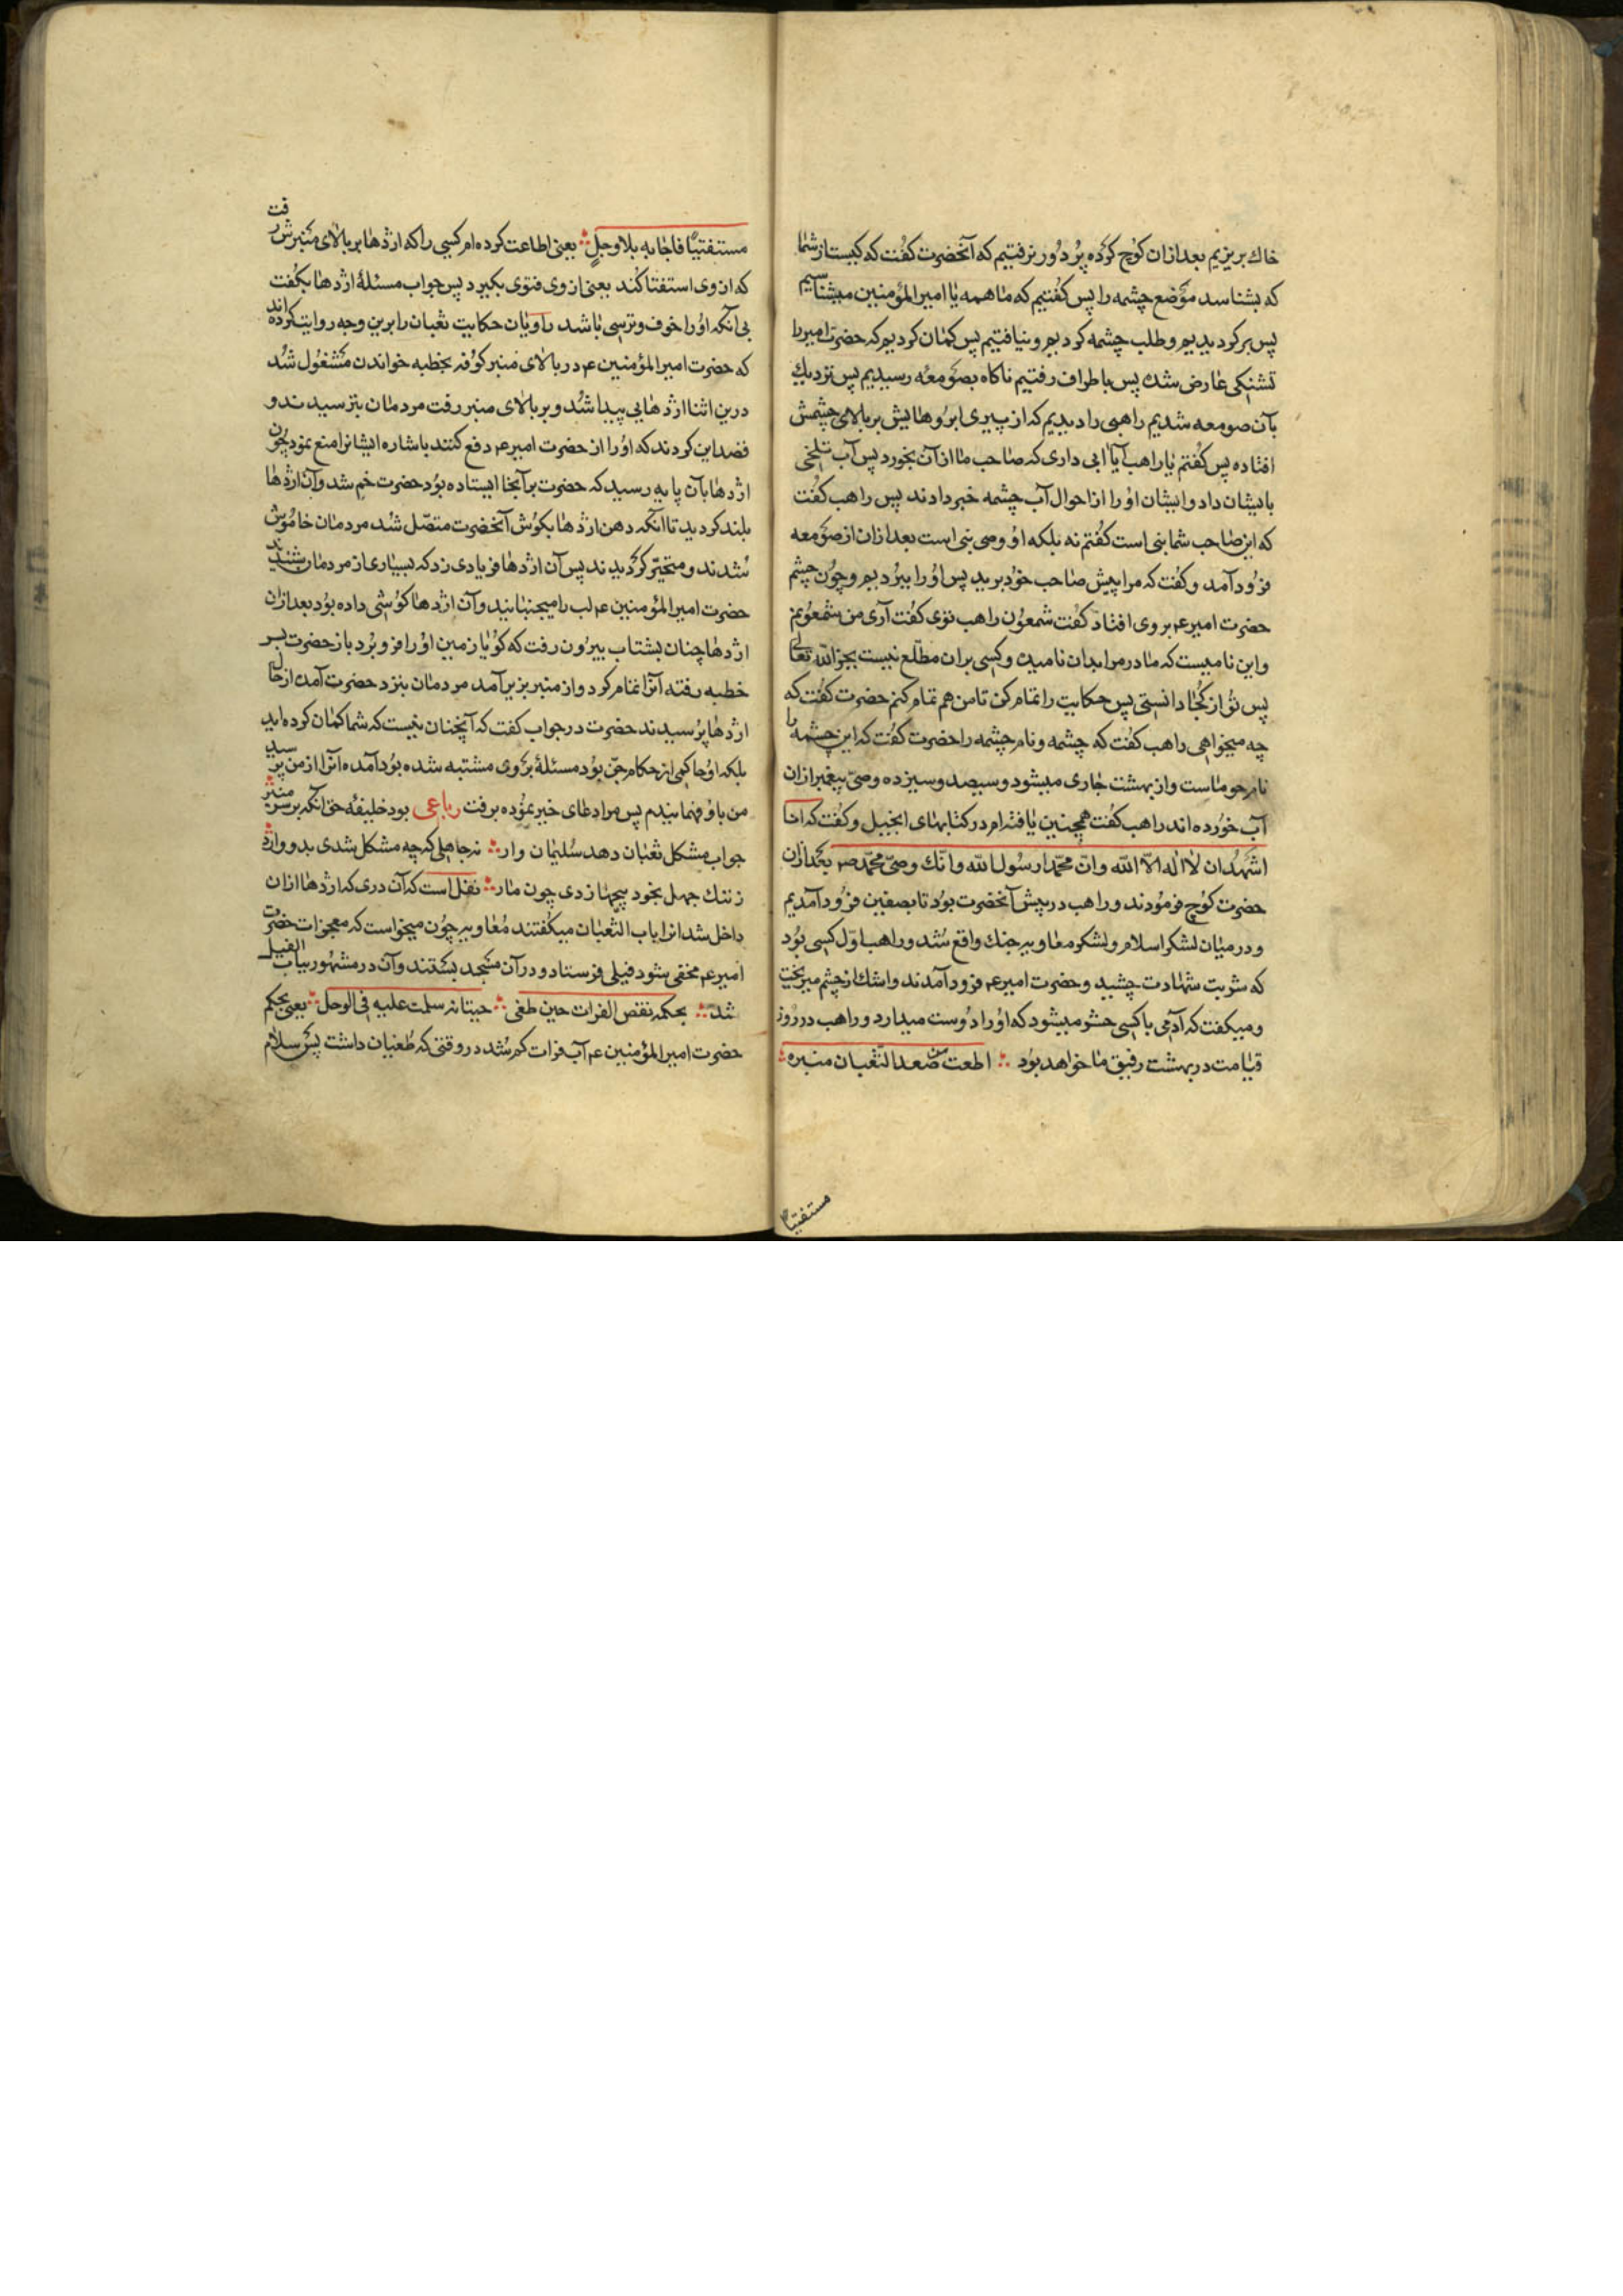 خاك بريزيم بعد ازان كوچ كرده پر دور نرفتيم كه آنحضرت كفت كه كيست از شما
كه بشناسد موضع چشمه را پس كفتيم كه ما همه يا امير المؤمنين ميشناسيم
پس بركرديديم و طلب چشمه كرديم و نيافتيم پس كمان كرديم كه حضرت امير را
تشنكى عارض شده پس باطراف رفتيم ناكاه بصومعه رسيديم پس نزديك
بآن صومعه شديم راهبى را ديديم كه از پيرى ابروهايش بر بالاى چشمش
افتاده پس كفتم يا راهب آيا آبى دارى كه صاحب ما از آن بخورد پس آب تلخى
بايشان داد و ايشان او را از احوال آب چشمه خبر دادند پس راهب كفت
كه اين صاحب شما نبى است كفتم نه بلكه او وصى نبى است بعد ازان از صومعه
فرود آمد و كفت كه مرا پيش صاحب خود بريد پس او را ببرديم و چون چشم
حضرت امير عم بر وى افتاد كفت شمعون راهب توى كفت آرى من شمعونم
و اين ناميست كه مادر مرا بدان ناميده و كسى بران مطلع نيست بجز الله تعالى
پس تو از كجا دانستى پس حكايت را تمام كن تا من هم تمام كنم حضرت كفت كه
چه ميخواهى راهب كفت كه چشمه و نام چشمه را حضرت كفت كه اين چشمه را
نام حوماست و از بهشت جارى ميشود و سيصد و سيزده وصى پيغمبر ازان
آب خورده اند راهب كفت همچنين يافته ام در كتابهاى انجيل و كفت كه انا
اشهد ان لا اله الا الله و ان محمدا رسول الله و انك وصى محمد صم بعد ازان
حضرت كوچ فرمودند و راهب در پيش آنحضرت بود تا بصفين فرود آمديم
و در ميان لشكر اسلام و لشكر معاويه جنك واقع شد و راهب اول كسى بود
كه شربت شهادت چشيد و حضرت امير عم فرود آمدند و اشك از چشم ميريخت
و ميكفت كه آدمى با كسى حشر ميشود كه او را دوست ميدارد و راهب در روز
قيامت در بهشت رفيق ما خواهد بود ∴ اطعت من صعد الثعبان منبره ∴
مستفتيا
مستفتيا فاجابه بلا وجل ∴ يعنى اطاعت كرده ام كسى را كه اژدها بر بالاى منبرش رفت
كه از وى استفتا كند يعنى از وى فتوى بكيرد پس جواب مسئلۀ اژدها بكفت
بى آنكه او را خوف و ترسى باشد راويان حكايت ثعبان را برين وجه روايت كرده اند
كه حضرت امير المؤمنين عم در بالاى منبر كوفه بخطبه خواندن مشغول شد
درين اثنا اژدهايى پيدا شد و بر بالاى منبر رفت مردمان بترسيدند و
قصد اين كردند كه او را از حضرت امير عم دفع كنند باشاره ايشانرا منع نمود چون
اژدها بآن پايه رسيد كه حضرت بر آنجا ايستاده بود حضرت خم شد و آن اژدها
بلند كرديد تا آنكه دهن اژدها بكوش آنحضرت متصل شد مردمان خاموش
شدند و متحير كرديدند پس آن اژدها فريادى زد كه بسيارى از مردمان شنيدند
حضرت امير المؤمنين عم لب را ميجنبانيد و آن اژدها كوشى داده بود بعد ازان
اژدها چنان بشتاب بيرون رفت كه كويا زمين او را فرو برد باز حضرت بسر
خطبه رفته آنرا تمام كرد و از منبر بزير آمد مردمان بنزد حضرت آمده از حال
اژدها پرسيدند حضرت در جواب كفت كه آنچنان نيست كه شما كمان كرده ايد
بلكه او حاكمى از حكام جن بود مسئلۀ بر وى مشتبه شده بود آمده آنرا از من پرسيد
من باو فهمانيدم پس مرا دعاى خير نموده برفت رباعى بود خليفۀ حق آنكه بر سر منبر
جواب مشكل ثعبان دهد سليمان وار ∴ نه جاهلى كه چه مشكل شدى بدو وارد
ز ننك جهل بخود پيچها زدى چون مار ∴ نقل است كه آن درى كه اژدها ازان
داخل شد آنرا باب الثعبان ميكفتند معاويه چون ميخواست كه معجزات حضرت
امير عم مخفى شود فيلى فرستاد و در آن مسجد بستند و آن در مشهور بباب الفيل
شد ∴ بحكمه نقص الفرات حين طغى ∴ حيتانه سلمت عليه فى الوحل ∴ يعنى بحكم
حضرت امير المؤمنين عم آب فرات كم شد در وقتى كه طغيان داشت پس سلام